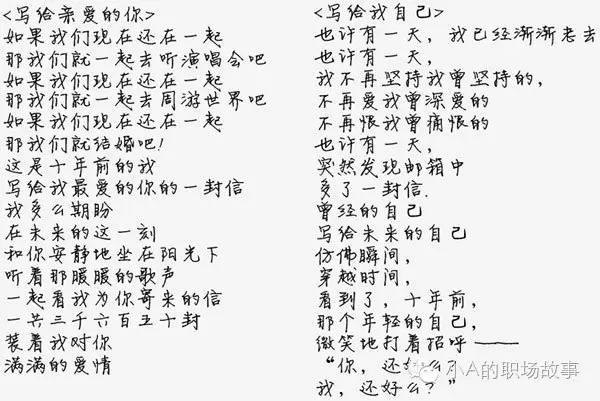 <写给亲爱的你>
如果我们现在还在一起
那我们就一起去听演唱会吧
如果我们现在还在一起
那我们就一起去周游世界吧
如果我们现在还在一起
那我们就结婚吧!
这是十年前的我
写给我最爱的你的一封信
我多么期盼
在未来的这一刻
和你安静地坐在阳光下
听着那暖暖的歌声
一起看我为你寄来的信
一共三千六百五十封
装着我对你
满满的爱情
<写给我自己>
也许有一天，我已经渐渐老去
也许有一天，
我不再坚持我曾坚持的，
不再爱我曾深爱的
不再恨我曾痛恨的
也许有一天，
突然发现邮箱中
多了一封信.
曾经的自己
写给未来的自己
仿佛瞬间，
穿越时间，
看到了，十年前，
那个年轻的自己，
微笑地打着招呼——
“你，还好么？
我，还好么？”
小A的职场故事